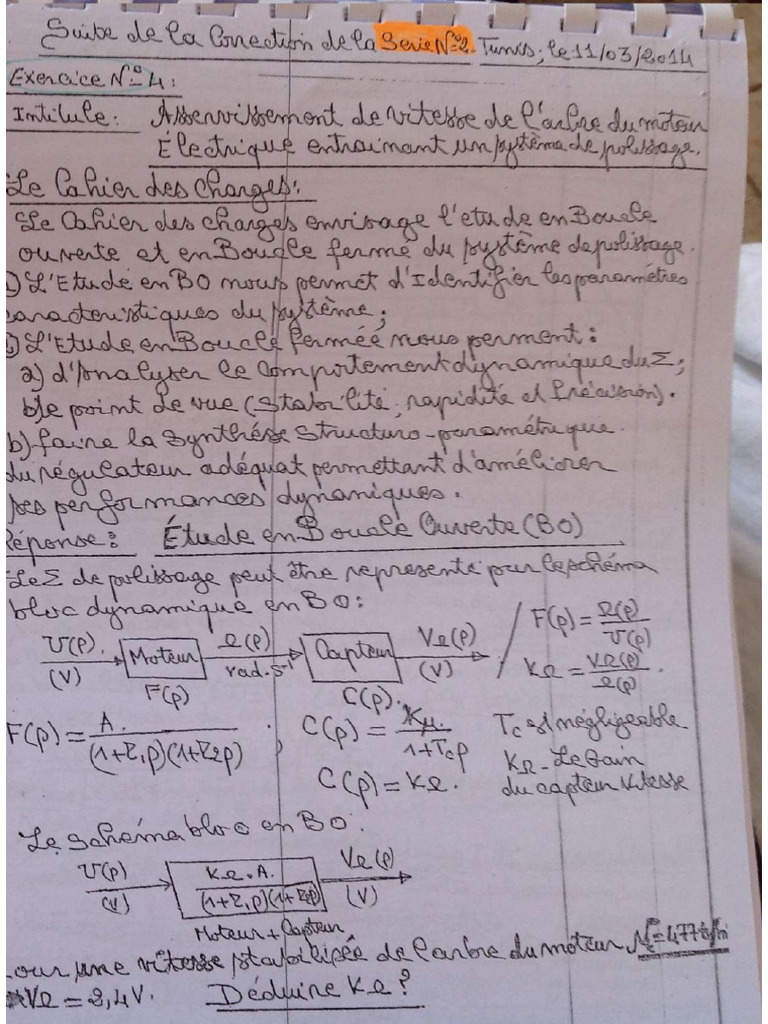 Suite de la Correction de la Serie N°2. Tunis, le 11/03/2014
Exercice N°4:
Intitule: Asservissement de vitesse de l'arbre du moteur
Électrique entrainant un système de polissage.
Le Cahier des charges:
Le Cahier des charges envisage l'etude en Boucle
ouverte et en Boucle fermé du système de polissage.
1) L'Etude en BO nous permet d'Identifier les paramètres
caracteristiques du système;
2) L'Etude en Boucle fermée nous perment:
a) d'Analyser le comportement dynamique du Σ;
de point de vue (Stabilité; rapidité et Précision).
b) faire la Synthése Structuro-paramétrique
du régulateur adéquat permettant d'améliorer
ses performances dynamiques.
Réponse: Étude en Boucle Ouverte (BO)
Le Σ de polissage peut être represente par le schéma
bloc dynamique en BO:
U(p) (V) Moteur F(p) Ω(p) rad.s⁻¹ Capteur C(p) VΩ(p) (V) / F(p) = Ω(p)/U(p)
KΩ = VΩ(p)/Ω(p).
F(p) = A/((1+τ₁p)(1+τ₂p)) ; C(p) = Kμ/(1+Tcp) Tc est négligeable
C(p) = KΩ. KΩ - Le Gain
du capteur vitesse
Le schéma bloc en BO:
U(p) (V) KΩ.A./((1+τ₁p)(1+τ₂p)) VΩ(p) (V)
Moteur + Capteur
Pour une vitesse stabilisée de l'arbre du moteur = 477 tr/min
VΩ = 2,4V. Déduire KΩ?